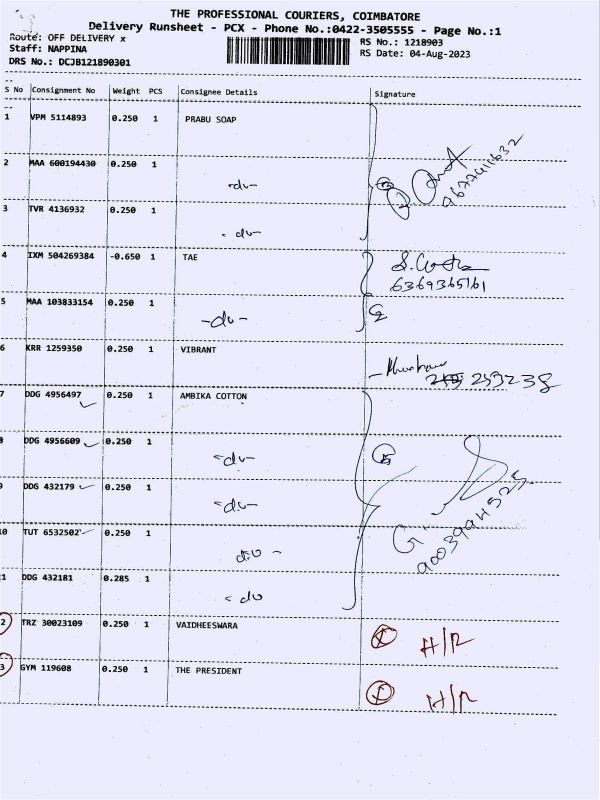 THE PROFESSIONAL COURIERS, COIMBATORE
Delivery Runsheet - PCX - Phone No.:0422-3505555 - Page No.:1
Route: OFF DELIVERY x RS No.: 1218903
Staff: NAPPINA RS Date: 04-Aug-2023
DRS No.: DCJB121890301
S No Consignment No Weight PCS Consignee Details Signature
1 VPM 5114893 0.250 1 PRABU SOAP
2 MAA 600194430 0.250 1
-do-
9677411632
3 TVR 4136932 0.250 1
- do-
4 IXM 504269384 -0.650 1 TAE
6369365161
5 MAA 103833154 0.250 1
-do-
6 KRR 1259350 0.250 1 VIBRANT
253238
7 DDG 4956497 0.250 1 AMBIKA COTTON
8 DDG 4956609 0.250 1
-do-
9 DDG 432179 0.250 1
-do-
10 TUT 6532502 0.250 1
do -
11 DDG 432181 0.285 1
- do
12 TRZ 30023109 0.250 1 VAIDHEESWARA
H/R
13 GYM 119608 0.250 1 THE PRESIDENT
H/R